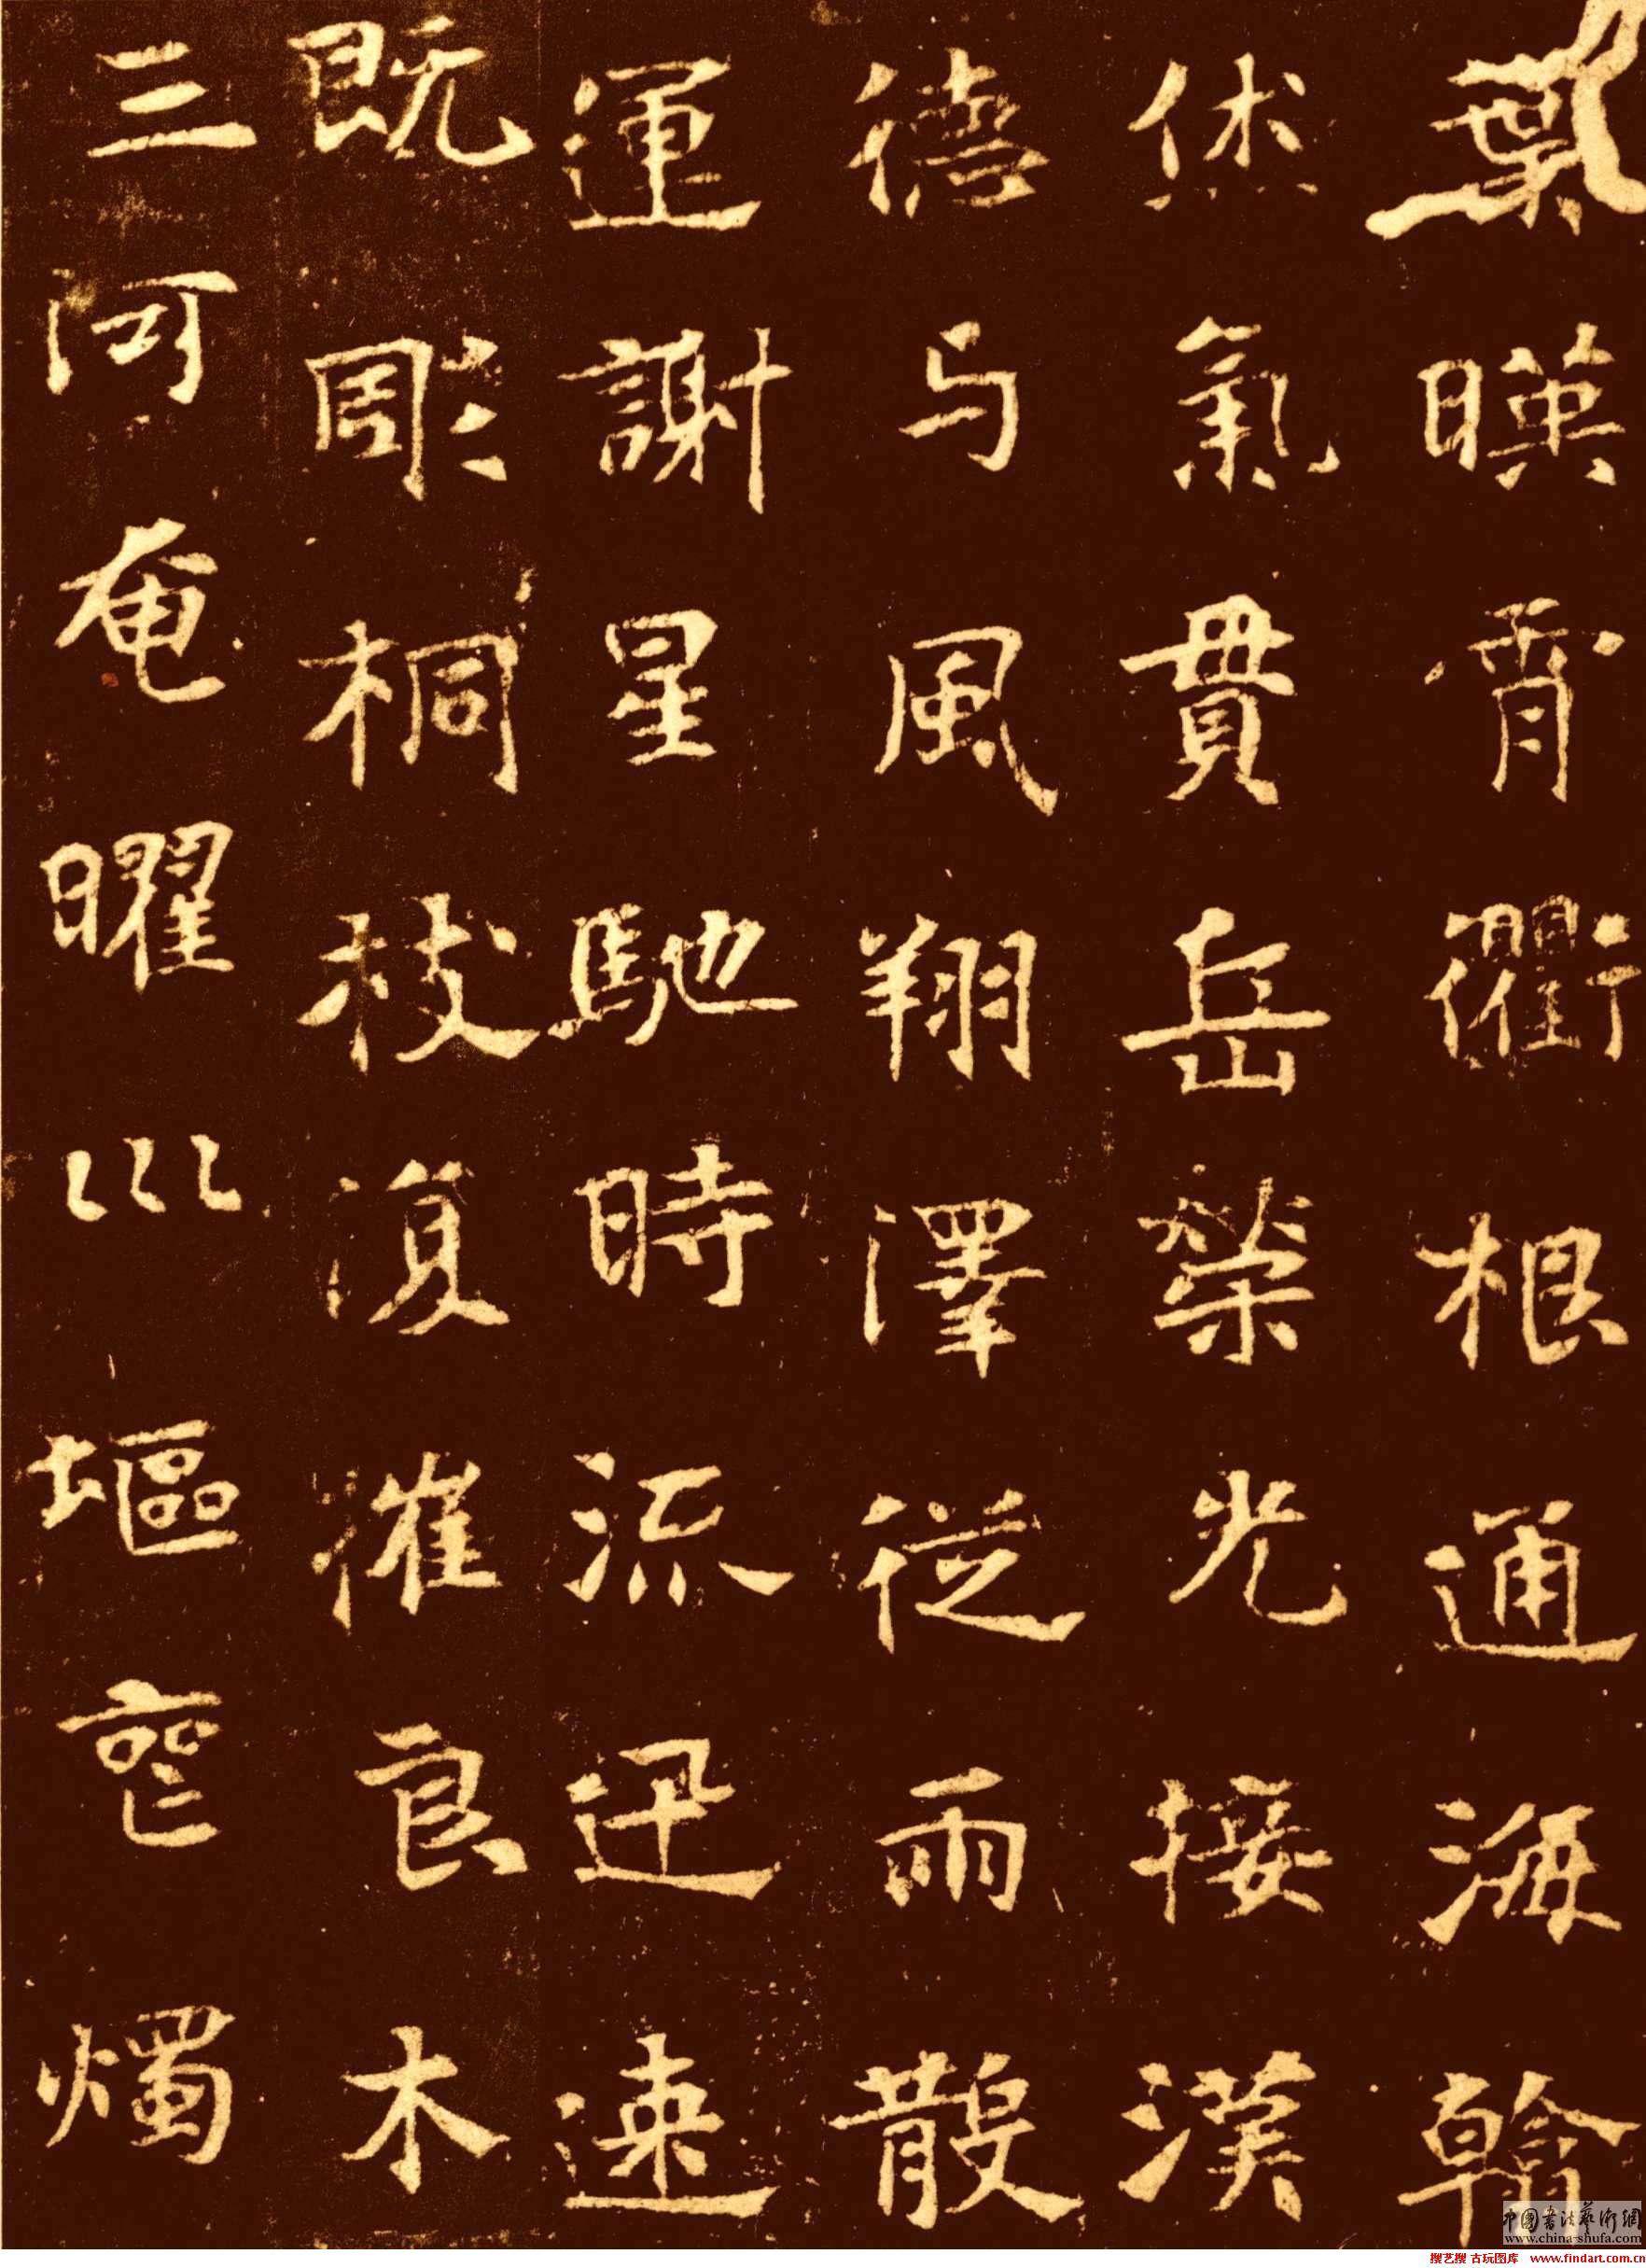 葉暎霄衢根通海翰
烋氣貫岳榮光接漢
德与風翔澤從雨散
運謝星馳時流迅速
既彫桐枝復摧良木
三河奄曜巛塸喪燭
中國書法藝術網
www.china-shufa.com
搜艺搜 古玩图库 www.findart.com.cn